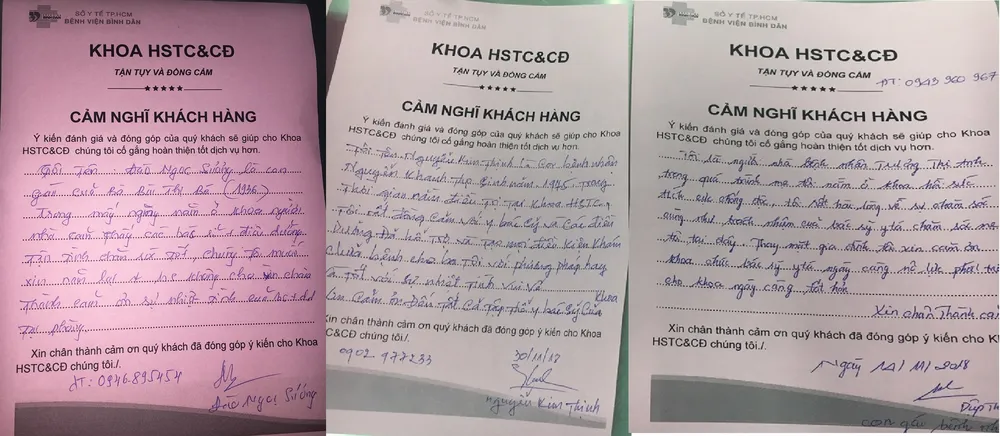 SỞ Y TẾ TP.HCM
BỆNH VIỆN BÌNH DÂN
KHOA HSTC&CĐ
TẬN TỤY VÀ ĐỒNG CẢM
CẢM NGHĨ KHÁCH HÀNG
Ý kiến đánh giá và đóng góp của quý khách sẽ giúp cho Khoa
HSTC&CĐ chúng tôi cố gắng hoàn thiện tốt dịch vụ hơn.
Tôi Tên: Đào Ngọc Sướng là con
gái của Bà Bùi Thị Bá (1936)
trong mấy ngày nằm ở khoa người
nhà cảm thấy các bác sĩ điều dưỡng
Tận tình chăm sóc tốt, chúng tôi muốn
xin nằm lại
Thành cảm ơn sự nhiệt tình của
Tại phòng
Xin chân thành cảm ơn quý khách đã đóng góp ý kiến cho Khoa
HSTC&CĐ chúng tôi./.
ĐT: 0946.895454
Đào Ngọc Sướng
SỞ Y TẾ TP.HCM
BỆNH VIỆN BÌNH DÂN
KHOA HSTC&CĐ
TẬN TỤY VÀ ĐỒNG CẢM
CẢM NGHĨ KHÁCH HÀNG
Ý kiến đánh giá và đóng góp của quý khách sẽ giúp cho Khoa
HSTC&CĐ chúng tôi cố gắng hoàn thiện tốt dịch vụ hơn.
Tôi Tên Nguyễn Kim Thịnh là Con bệnh nhân
Nguyễn Khánh Thọ Sinh năm 1945 Trong
Thời gian nằm điều Trị Tại Khoa HSTC
Tôi rất đồng cảm với y bác sỹ và Các điều
Dưỡng Đã hổ Trợ và Tạo mọi điều kiện Khám
chữa bệnh cho ba Tôi với phương pháp hay
và Tốt với sự nhiệt Tình vui vẻ
Xin Cảm ơn Đến Tất Cả Tập Thể y bác Sỹ Của Khoa
Xin chân thành cảm ơn quý khách đã đóng góp ý kiến cho Khoa
HSTC&CĐ chúng tôi./.
0902 977233
30/11/18
Nguyễn Kim Thịnh
SỞ Y TẾ TP.HCM
BỆNH VIỆN BÌNH DÂN
KHOA HSTC&CĐ
TẬN TỤY VÀ ĐỒNG CẢM
ĐT: 0943 960 967
CẢM NGHĨ KHÁCH HÀNG
Ý kiến đánh giá và đóng góp của quý khách sẽ giúp cho Khoa
HSTC&CĐ chúng tôi cố gắng hoàn thiện tốt dịch vụ hơn.
Tôi là người nhà bệnh nhân Trương Thị Anh
trong quá trình mẹ tôi nằm ở khoa hồi sức
tích cực chống độc, tôi rất hài lòng về sự chăm sóc
cũng như trách nhiệm của bác sỹ y tá chăm sóc mẹ
tôi tại đây. Thay mặt gia đình tôi xin cảm ơn
khoa chúc bác sỹ y tá ngày càng nỗ lực phát
cho khoa ngày càng tốt hơn
Xin chân Thành cảm
Xin chân thành cảm ơn quý khách đã đóng góp ý kiến cho
HSTC&CĐ chúng tôi./.
Ngày 14/11/2018
Điệp
con gái bệnh